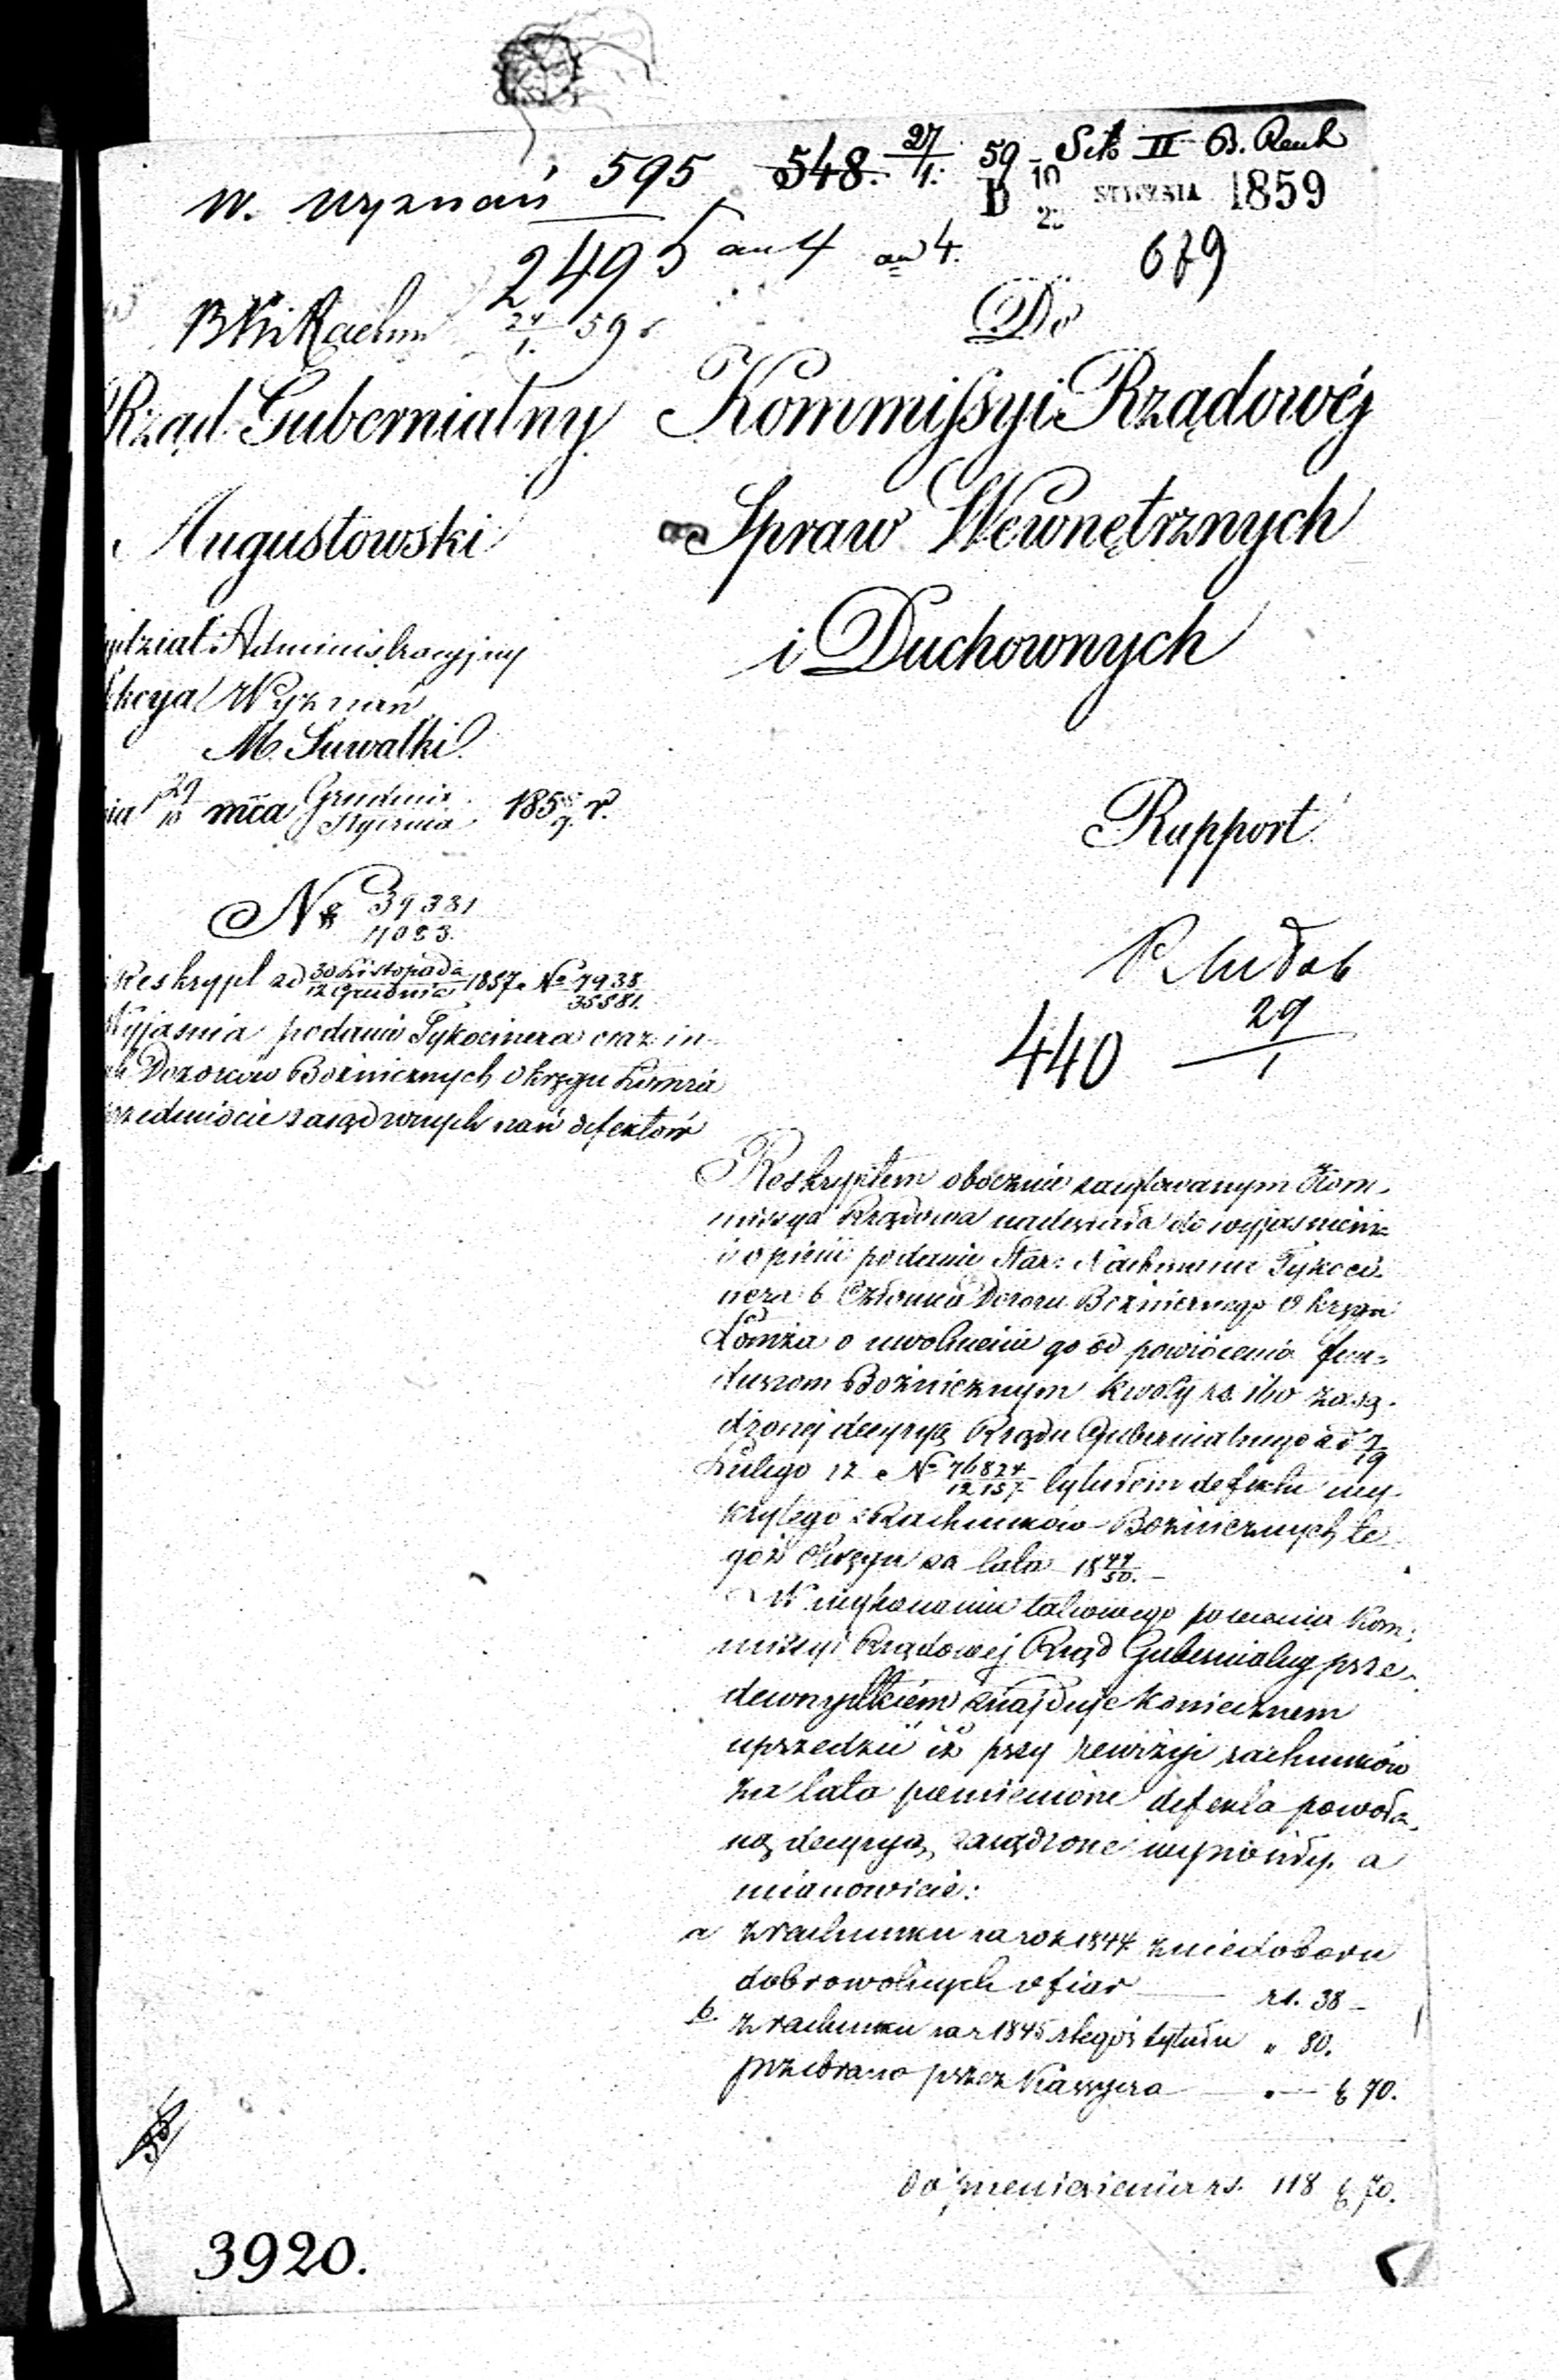 595 548. 27/1. 59 – Sekt. II B. Rach
W. Wyznań
D 10/22 STYCZNIA 1859
2495 an 4 an 4.
679
24/1. 59
Do
Rząd Gubernialny
Augustowski
Wydział Administracyjny
Sekcya Wyznań
M. Suwałki
nia 29/10 mca Grudnia/Stycznia 185 8/9 r.
No 39381/11083.
Reskrypt od 30 Listopada/12 Grudnia 1857 No 7938/35581.
Wyjasnia podanie Tykocinera oraz in-
Dozorców Bożniczych Okręgu Łomża
przedmiocie zasądzonych nań defektów
Kommissyi Rządowéj
Spraw Wewnętrznych
i Duchownych
Rapport
440 29/1
Reskryptem obocznie zacytowanym Kom-
missya Rządowa nadesłała do wyjasnienia
i opinii podanie Star: Nachmana Tykoci-
nera b Członka Dozoru Bożniczego Okręgu
Łomża o uwolnienie go od powrócenia fun-
duszom Bożnicznym kwoty rs. 110 zasą-
dzonej decyzyą Rządu Gubernialnego z d 7/19
Lutego No 76824/12157 tytułem defektu wy-
krytego z Rachunków Bożnicznych te
goż Okręgu za lata 18 44/50. –
W wykonaniu takowego polecenia Kom-
missyi Rządowej Rząd Gubernialny prze-
dewszystkiém znajduje koniecznem
uprzedzić iż przy rewizyi rachunków
za lata pomienione defekta powoła-
ną decyzyą zasądzone wynosiły, a
mianowicie:
a z rachunku za rok 1844 z niedoboru
dobrowolnych ofiar — rs. 38 –
b. z rachunku za r 1845 z tegoż tytułu „ 80.
przebrano przez Kassyera — „ — k 70.
do przeniesienia rs. 118 k 70.
3920.